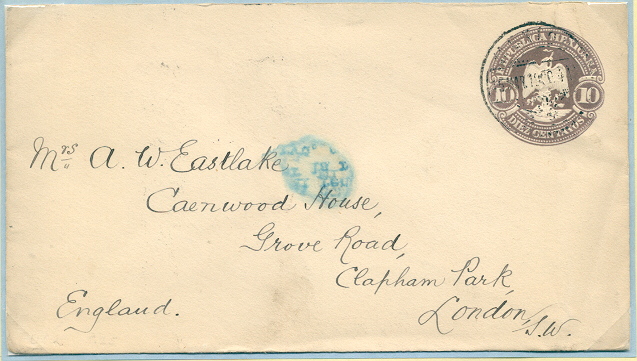 REPUBLICA MEXICANA
10 10
DIEZ CENTAVOS
Mrs A. W. Eastlake
Caenwood House,
Grove Road,
Clapham Park,
London, S.W.
England.